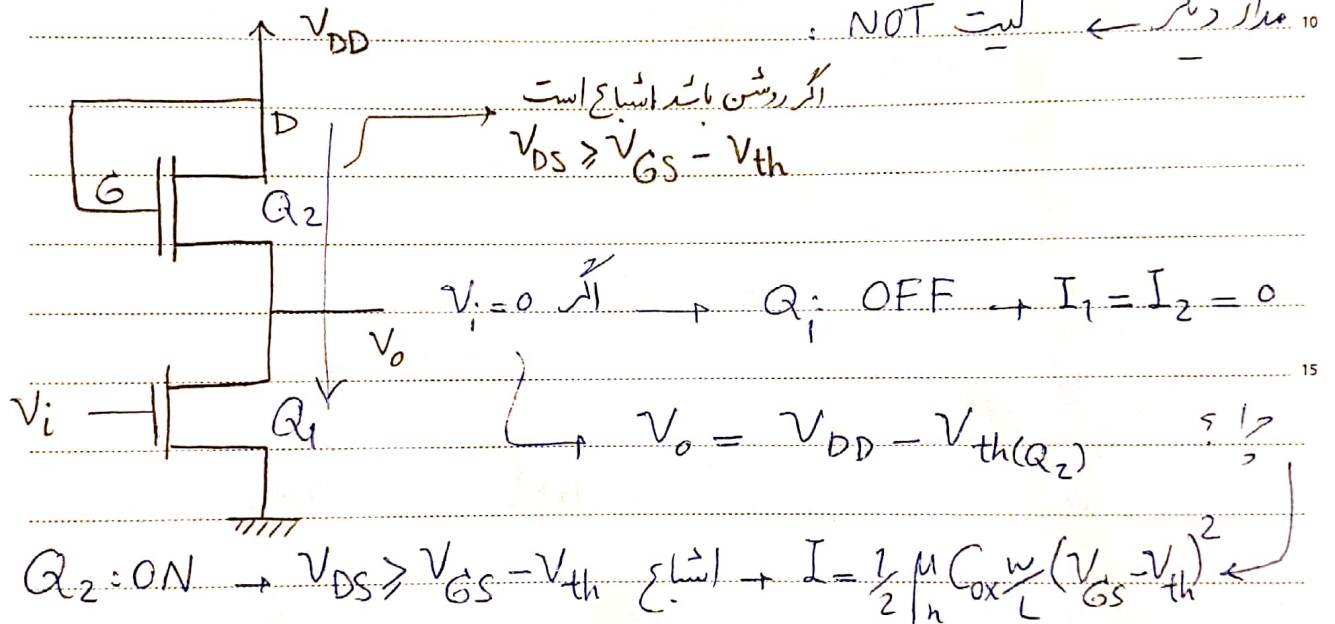 10 مدار دیگر ← گیت NOT :
V_DD
D
اگر روشن باشد اشباع است
V_DS ≥ V_GS - V_th
G
Q_2
اگر V_i = 0 → Q_1 : OFF → I_1 = I_2 = 0
V_o
15
V_i
Q_1
V_o = V_DD - V_th(Q_2) چرا ؟
Q_2 : ON → V_DS ≥ V_GS - V_th اشباع → I = 1/2 μ_n C_ox W/L (V_GS - V_th)^2